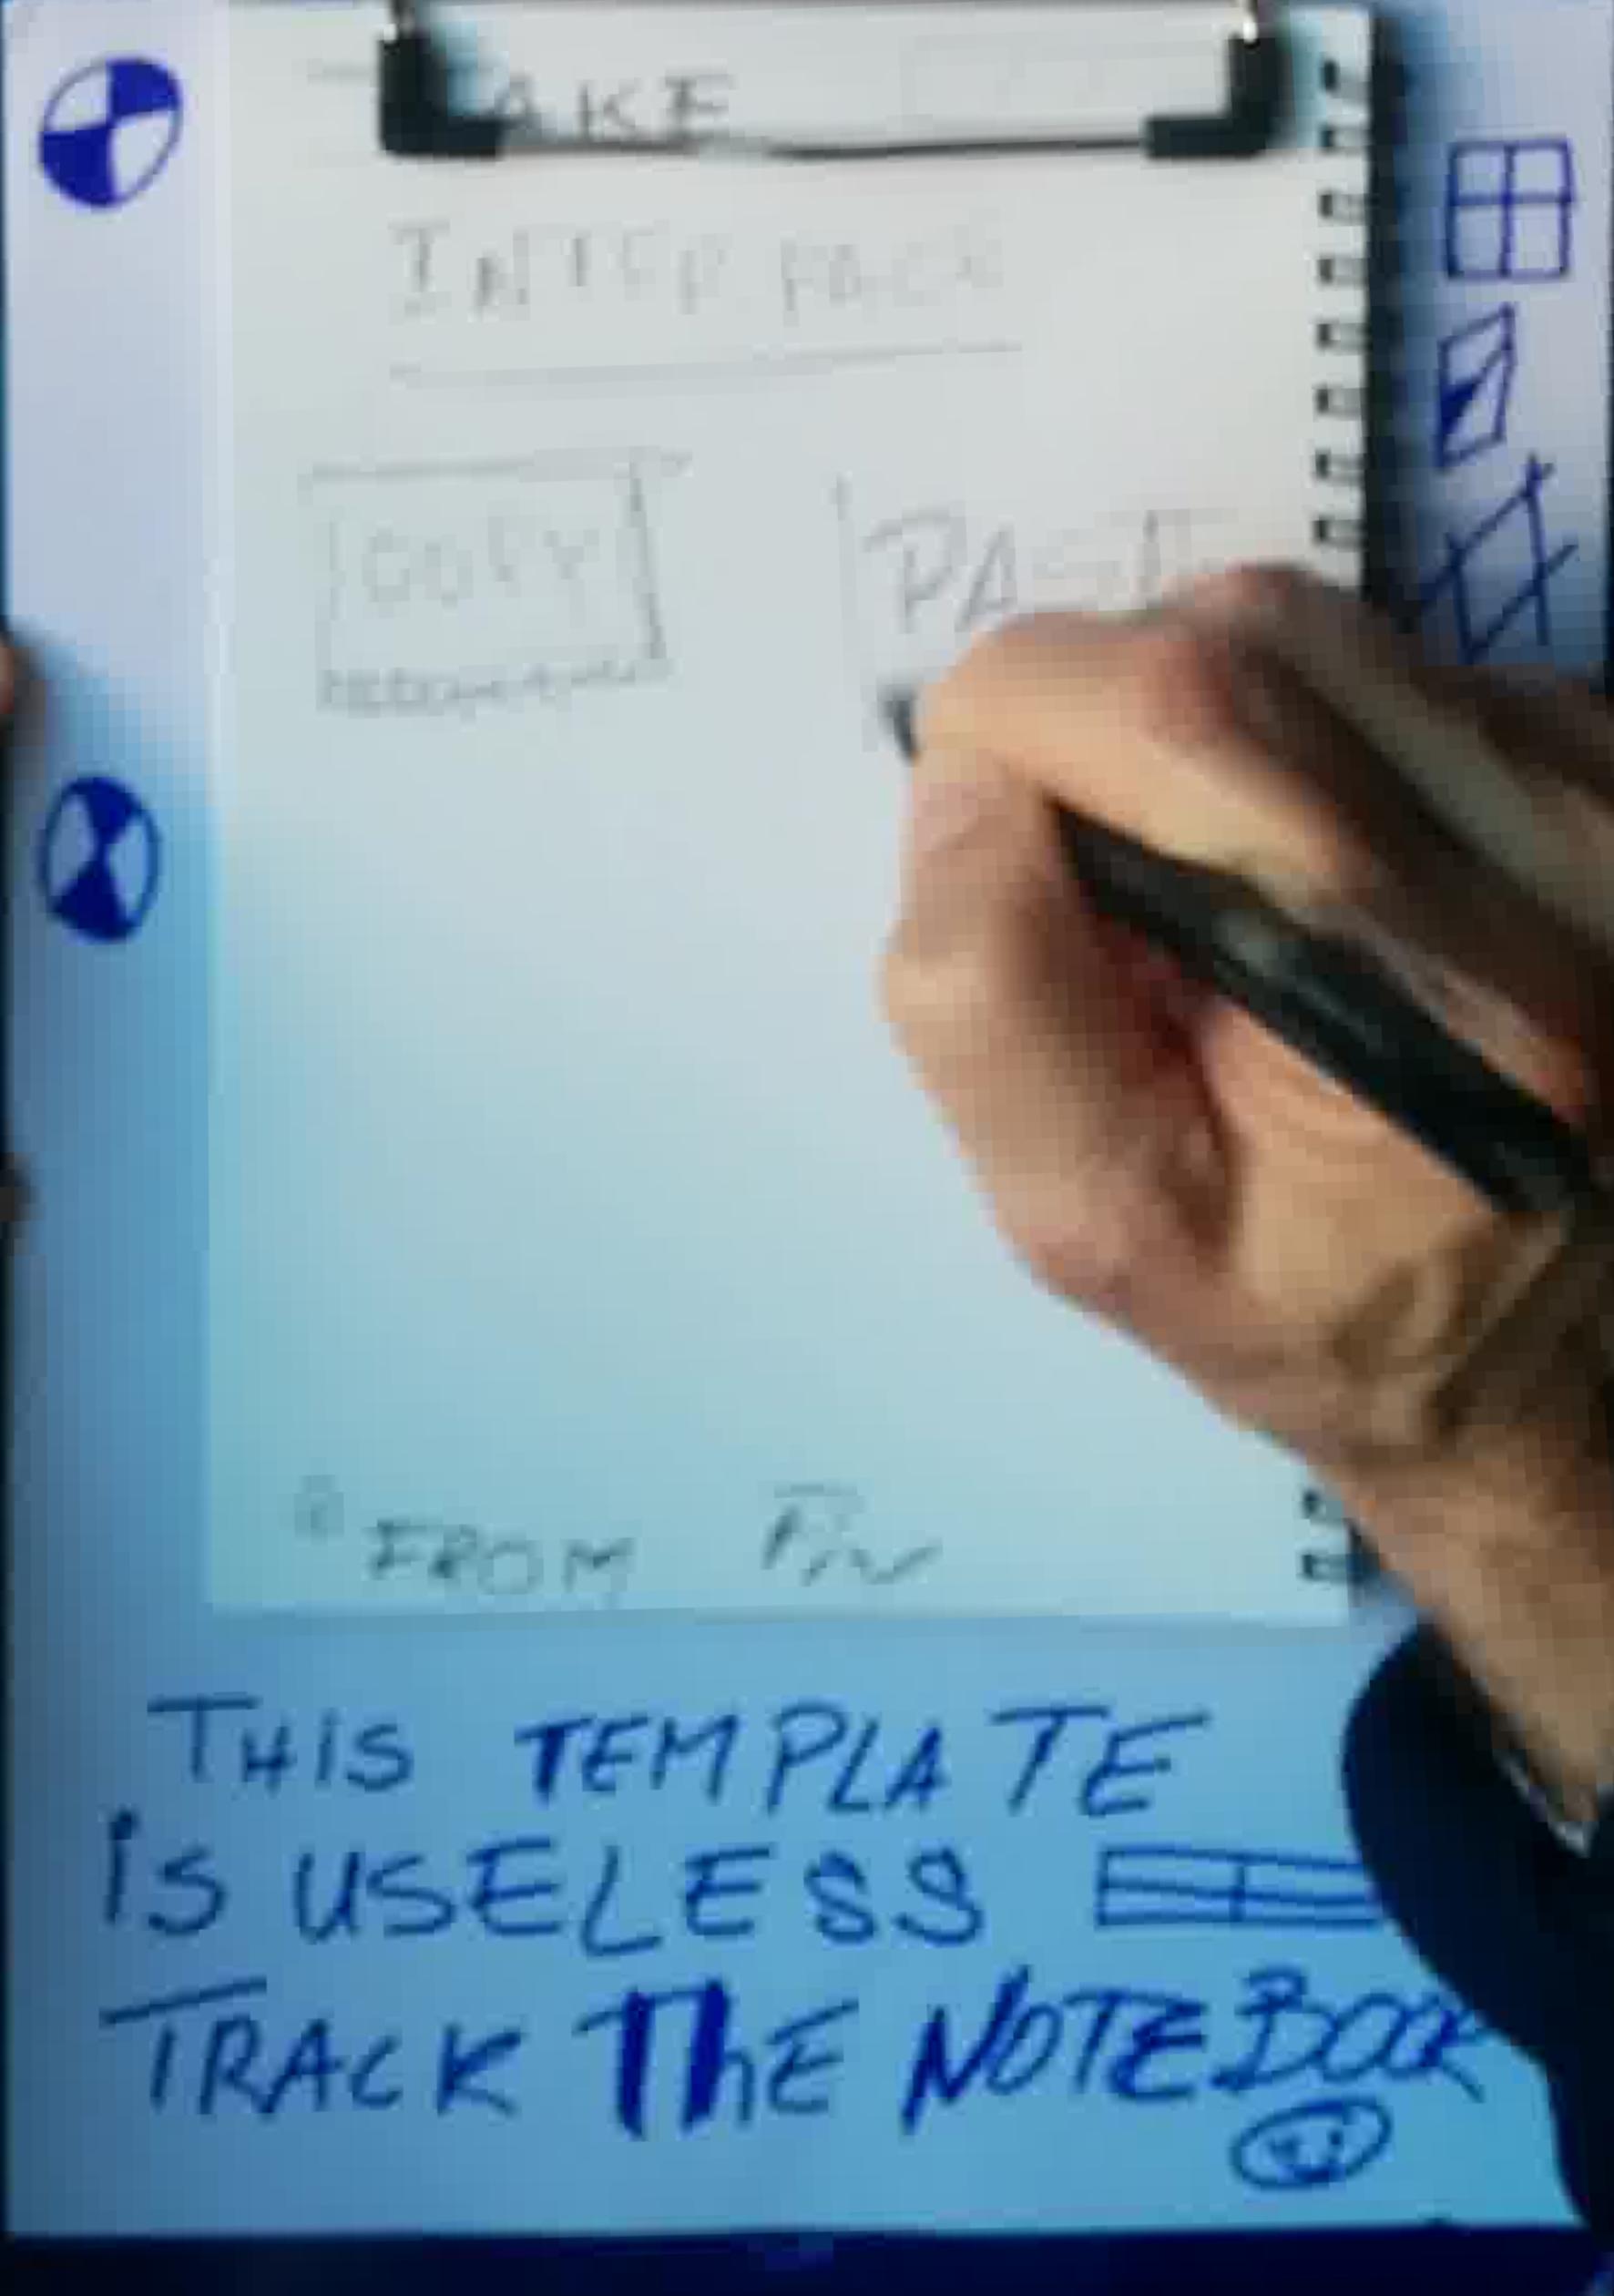 AKE
INTERFACE
COPY PAST
FROM
THIS TEMPLATE
IS USELESS
TRACK THE NOTEBOOK